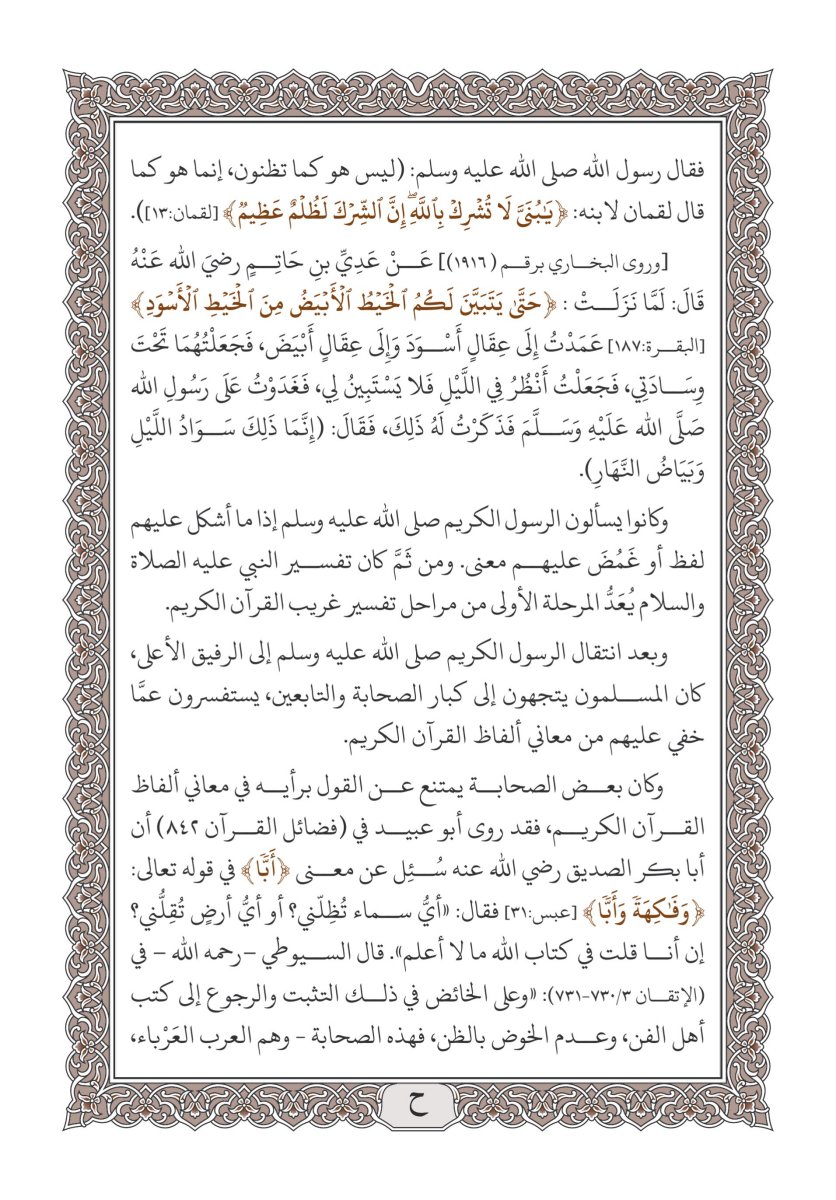 فقال رسول الله صلى الله عليه وسلم: (ليس هو كما تظنون، إنما هو كما
قال لقمان لابنه: ﴿يَٰبُنَيَّ لَا تُشْرِكْ بِٱللَّهِۖ إِنَّ ٱلشِّرْكَ لَظُلْمٌ عَظِيمٌ﴾ [لقمان:١٣]).
[وروى البخاري برقم (١٩١٦)] عَنْ عَدِيِّ بنِ حَاتِمٍ رضيَ الله عَنْهُ
قَالَ: لَمَّا نَزَلَتْ : ﴿حَتَّىٰ يَتَبَيَّنَ لَكُمُ ٱلْخَيْطُ ٱلْأَبْيَضُ مِنَ ٱلْخَيْطِ ٱلْأَسْوَدِ﴾
[البقرة:١٨٧] عَمَدْتُ إِلَى عِقَالٍ أَسْوَدَ وَإِلَى عِقَالٍ أَبْيَضَ، فَجَعَلْتُهُمَا تَحْتَ
وِسَادَتِي، فَجَعَلْتُ أَنْظُرُ فِي اللَّيْلِ فَلا يَسْتَبِينُ لِي، فَغَدَوْتُ عَلَى رَسُولِ الله
صَلَّى الله عَلَيْهِ وَسَلَّمَ فَذَكَرْتُ لَهُ ذَلِكَ، فَقَالَ: (إِنَّمَا ذَلِكَ سَوَادُ اللَّيْلِ
وَبَيَاضُ النَّهَارِ).
وكانوا يسألون الرسول الكريم صلى الله عليه وسلم إذا ما أشكل عليهم
لفظ أو غَمُضَ عليهم معنى. ومن ثَمَّ كان تفسير النبي عليه الصلاة
والسلام يُعَدُّ المرحلة الأولى من مراحل تفسير غريب القرآن الكريم.
وبعد انتقال الرسول الكريم صلى الله عليه وسلم إلى الرفيق الأعلى،
كان المسلمون يتجهون إلى كبار الصحابة والتابعين، يستفسرون عمَّا
خفي عليهم من معاني ألفاظ القرآن الكريم.
وكان بعض الصحابة يمتنع عن القول برأيه في معاني ألفاظ
القرآن الكريم، فقد روى أبو عبيد في (فضائل القرآن ٨٤٢) أن
أبا بكر الصديق رضي الله عنه سُئِل عن معنى ﴿أَبًّا﴾ في قوله تعالى:
﴿وَفَٰكِهَةً وَأَبًّا﴾ [عبس:٣١] فقال: «أيُّ سماء تُظِلّني؟ أو أيُّ أرضٍ تُقِلُّني؟
إن أنا قلت في كتاب الله ما لا أعلم». قال السيوطي –رحمه الله – في
(الإتقان ٧٣٠/٣-٧٣١): «وعلى الخائض في ذلك التثبت والرجوع إلى كتب
أهل الفن، وعدم الخوض بالظن، فهذه الصحابة - وهم العرب العَرْباء،
ح